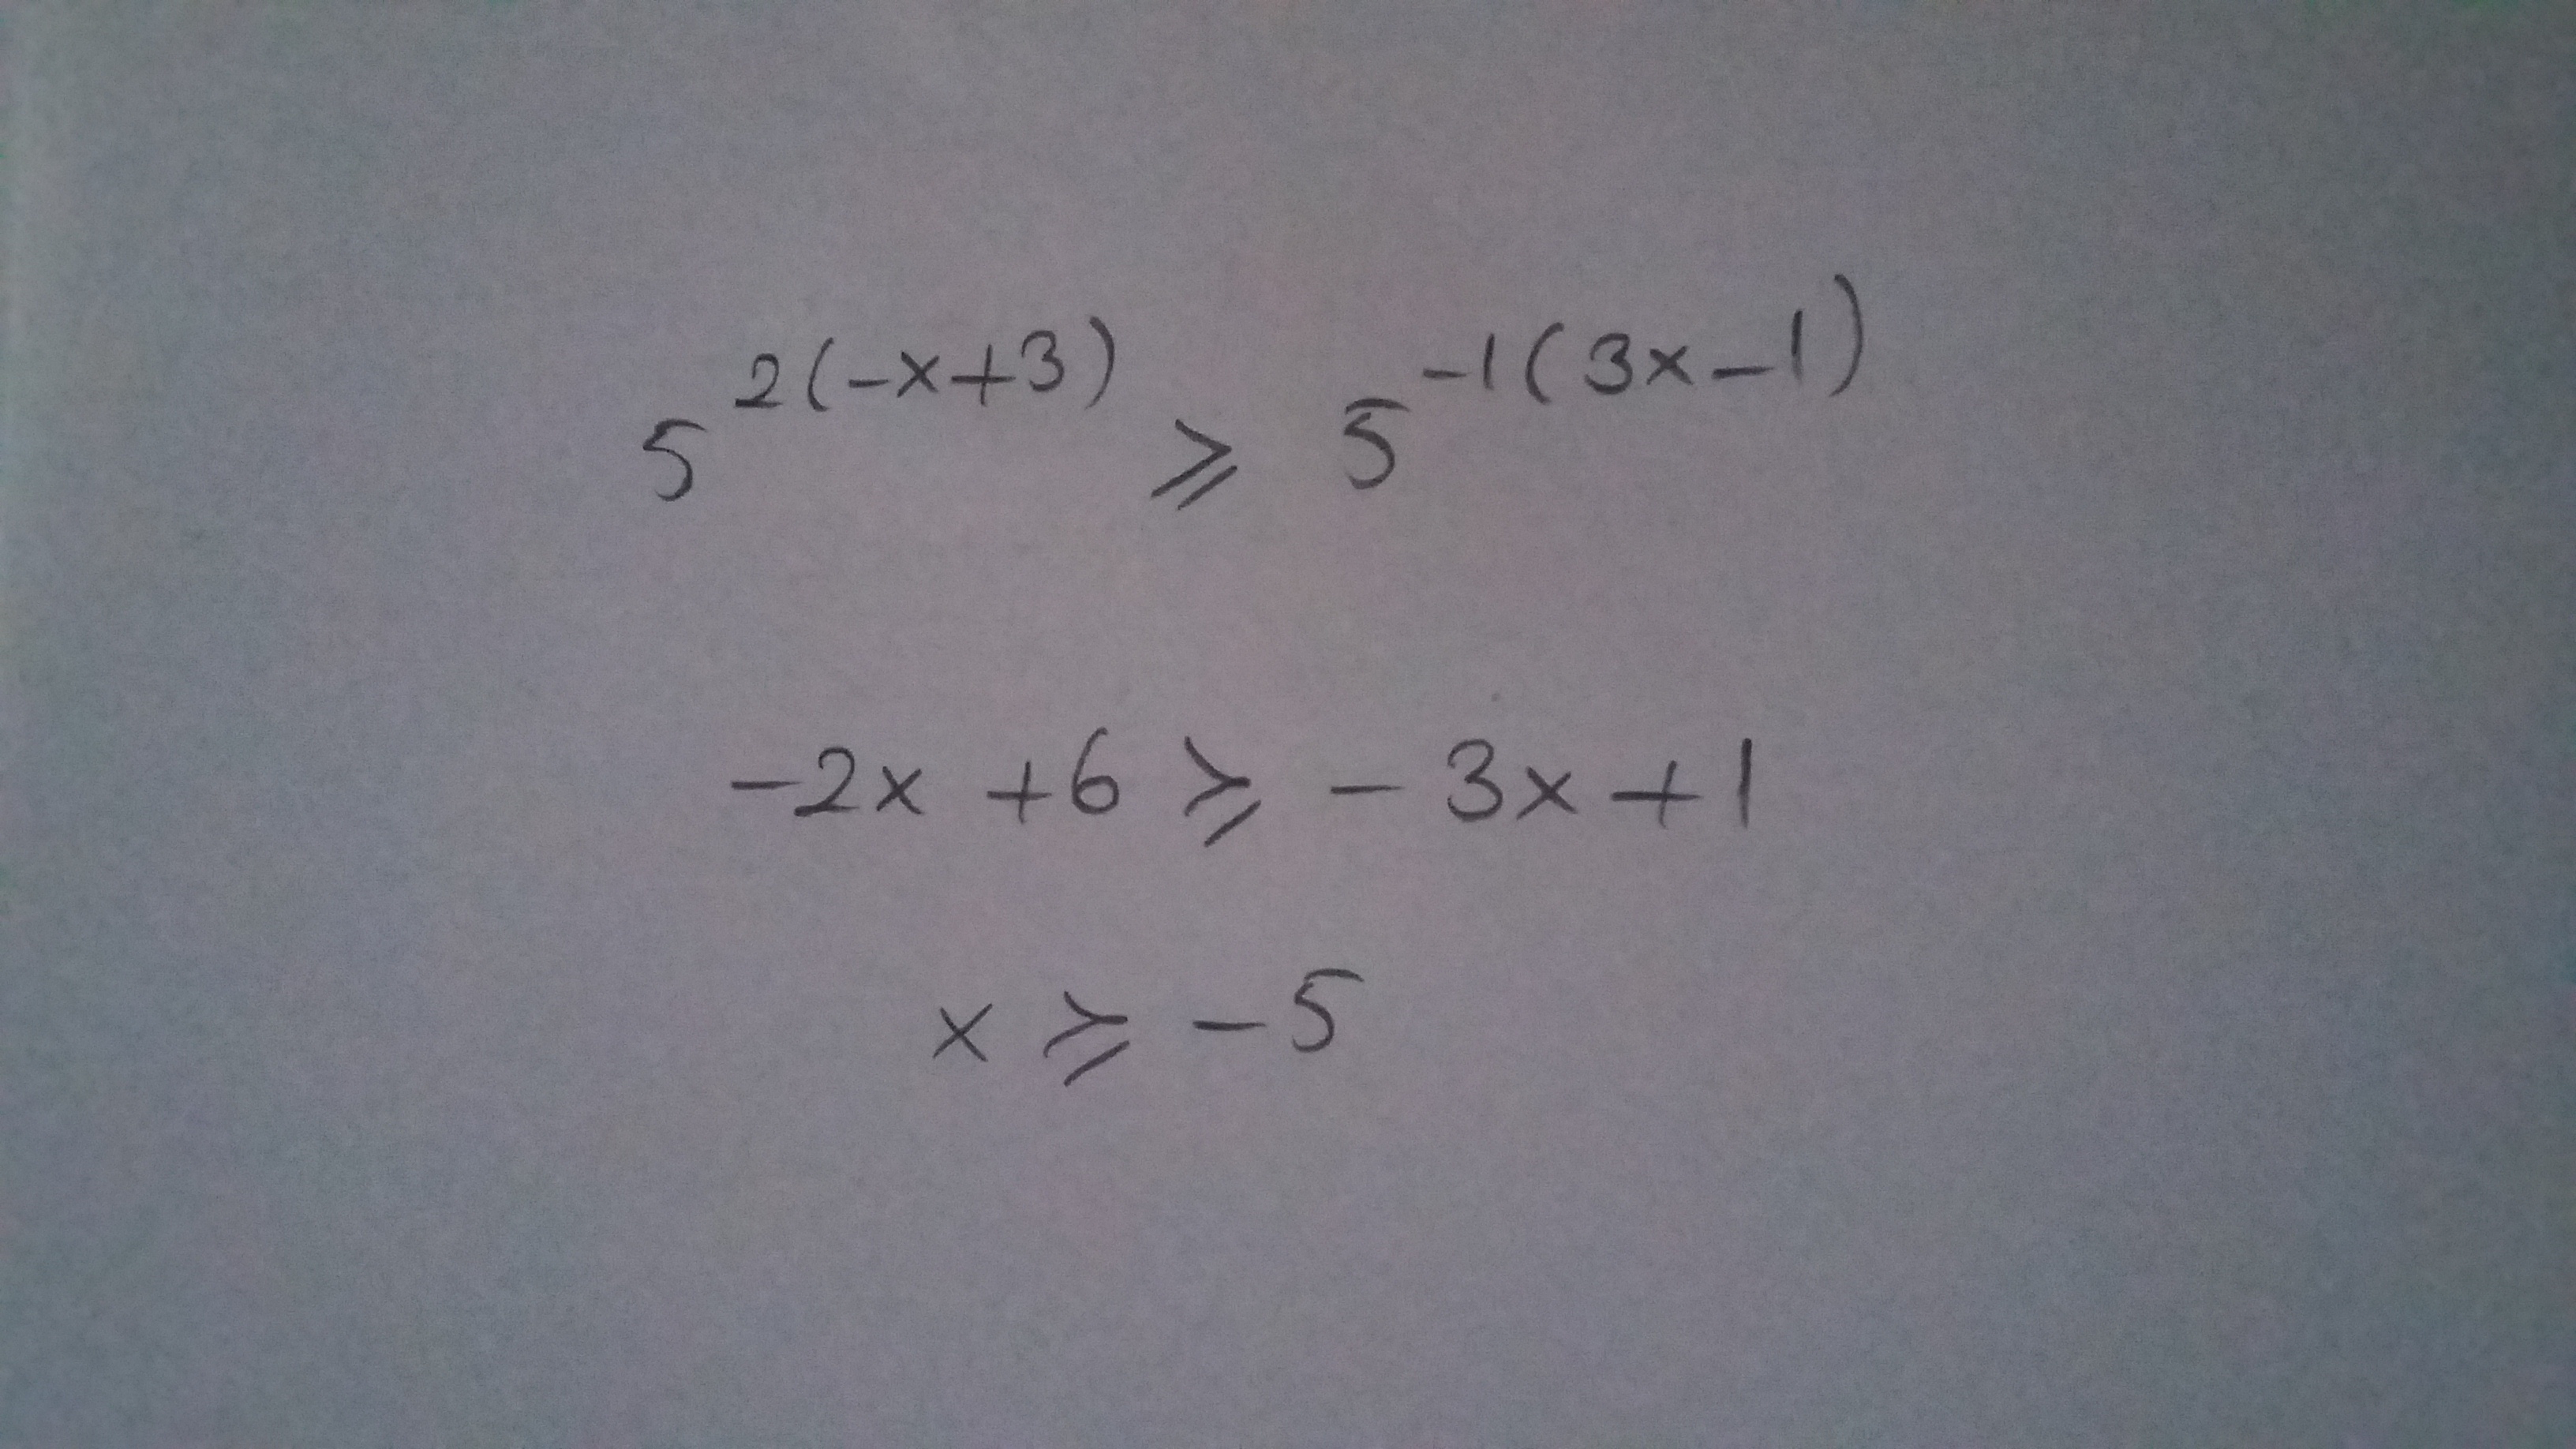 5^{2(-x+3)} ⩾ 5^{-1(3x-1)}
-2x +6 ⩾ - 3x +1
x ⩾ -5